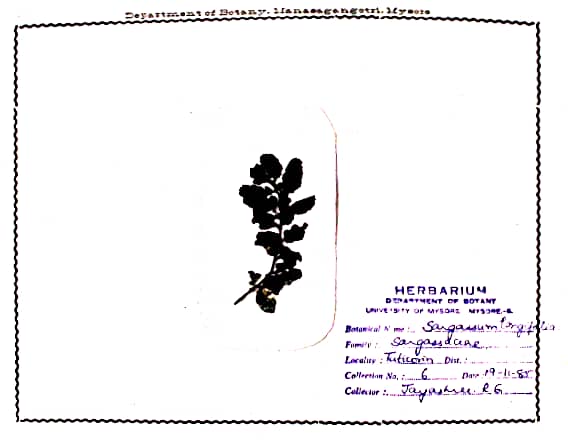 Department of Botany, Manasagangotri, Mysore
HERBARIUM
DEPARTMENT OF BOTANY
UNIVERSITY OF MYSORE MYSORE-6.
Botanical Name : Sargassum
Family : Sargassaceae
Locality : Tuticorin Dist. :
Collection No. : 6 Date 19-11-85
Collector : Jayashree R G